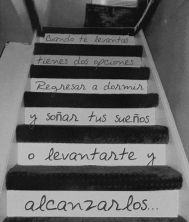 Cuando te levantas
tienes dos opciones
Regresar a dormir
y soñar tus sueños
o levantarte y
alcanzarlos...